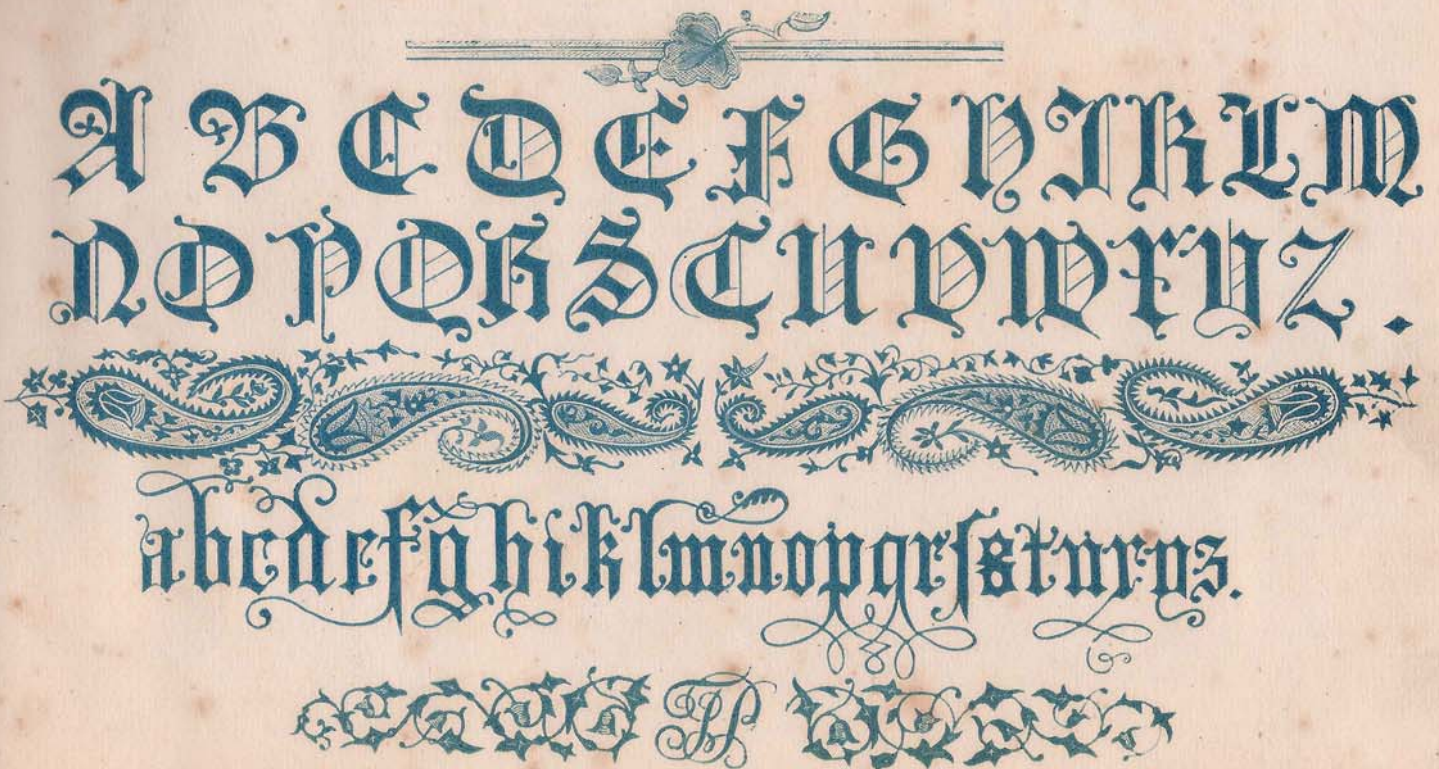 A B C D E F G H I K L M
N O P Q R S T U V W X Y Z .
a b c d e f g h i k l m n o p q r ſ s t u x y z.